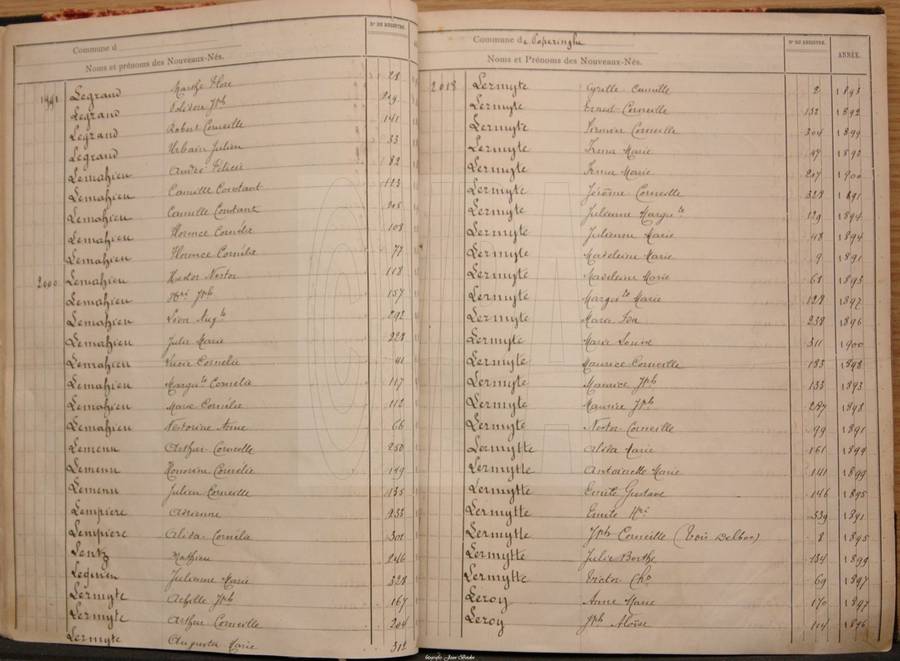 Commune d
Nos DE REGISTRE.
Noms et prénoms des Nouveaux-Nés.
1991 Legrand Marthe Flore 28
Legrand Joh 209
Legrand Robert Corneille 141
Legrand Urbain Julien 33
Lemahieu André Félicie 82
Lemahieu Camille Constant 123
Lemahieu Camille Constant 205
Lemahieu Florence Cornélie 108
Lemahieu Florence Cornélie 77
2000 Lemahieu Hector Nestor 118
Lemahieu Hri Jph 157
Lemahieu Léon Augte 292
Lemahieu Julie Marie 228
Lemahieu Cornélie 41
Lemahieu Margte Cornélie 117
Lemahieu Marie Cornélie 112
Lemahieu Nestorine Anne 66
Lemenu Arthur Corneille 250
Lemenu Honorine Cornélie 149
Lemenu Julien Corneille 135
Lempiere Adrienne 233
Lempiere Alida Cornélie 301
Lentz Mathieu 246
Julienne Marie 328
Lermyte Achille Jph 167
Lermyte Arthur Corneille 204
Lermyte Augusta Marie 312
Commune de Poperinghe
Nos DE REGISTRE.
ANNÉE.
Noms et Prénoms des Nouveaux-Nés.
2018 Lermyte Cyrille Camille 2 1893
Lermyte Ernest Corneille 132 1892
Lermyte Firmin Corneille 304 1899
Lermyte Irma Marie 47 1890
Lermyte Irma Marie 207 1900
Lermyte Jérôme Corneille 328 1891
Lermyte Julienne Margte 129 1894
Lermyte Julienne Marie 48 1894
Lermyte Madeleine Marie 9 1891
Lermyte Madeleine Marie 68 1893
Lermyte Margte Marie 128 1897
Lermyte Marie Léa 238 1896
Lermyte Marie Louise 311 1900
Lermyte Maurice Corneille 183 1898
Lermyte Maurice Jph 133 1893
Lermyte Maurice Jph 287 1898
Lermyte Nestor Corneille 99 1891
Lermytte Alida Marie 161 1899
Lermytte Antoinette Marie 141 1899
Lermytte Emile Gustave 146 1895
Lermytte Emile Hri 339 1891
Lermytte Jph Corneille (Voir Delbar) 8 1895
Lermytte Julie Berthe 134 1899
Lermytte Victor Chs 69 1897
Leroy Anne Marie 170 1897
Leroy Jph Aloïse 114 1896